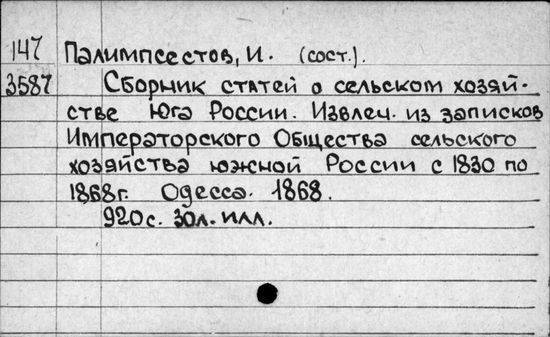 147 Палимпсестов, И. (сост.).
3587 Сборник статей о сельском хозяй-
стве Юга России. Извлеч. из записков
Императорского Общества сельского
хозяйства южной России с 1830 по
1868г. Одесса. 1868.
920с. 30л. илл.